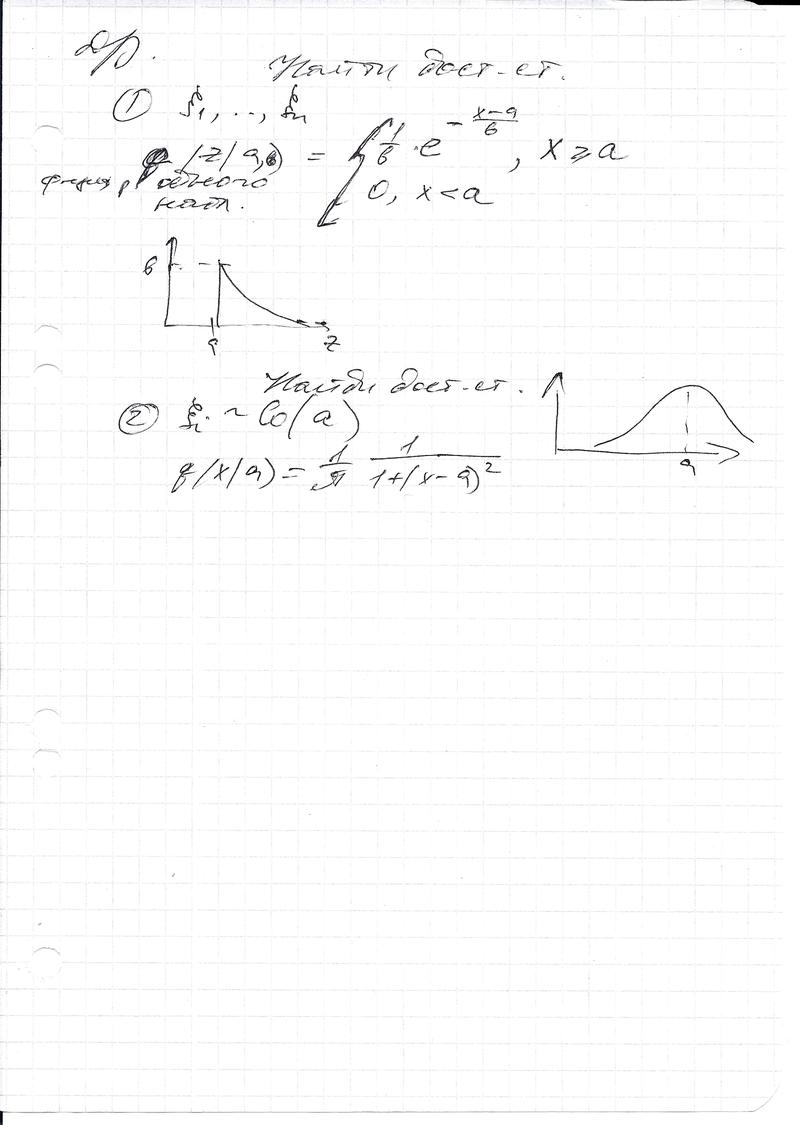 ДР.
Найти дост-ст.
① ξ₁, ..., ξₙ
q (z|a,b) = { 1/b · e^(-(x-a)/b), x ⩾ a
0, x < a
одного
набл.
b
a
z
Найти дост-ст.
② ξᵢ ~ Co(a)
q(x|a) = 1/π 1/(1+(x-a)²)
a